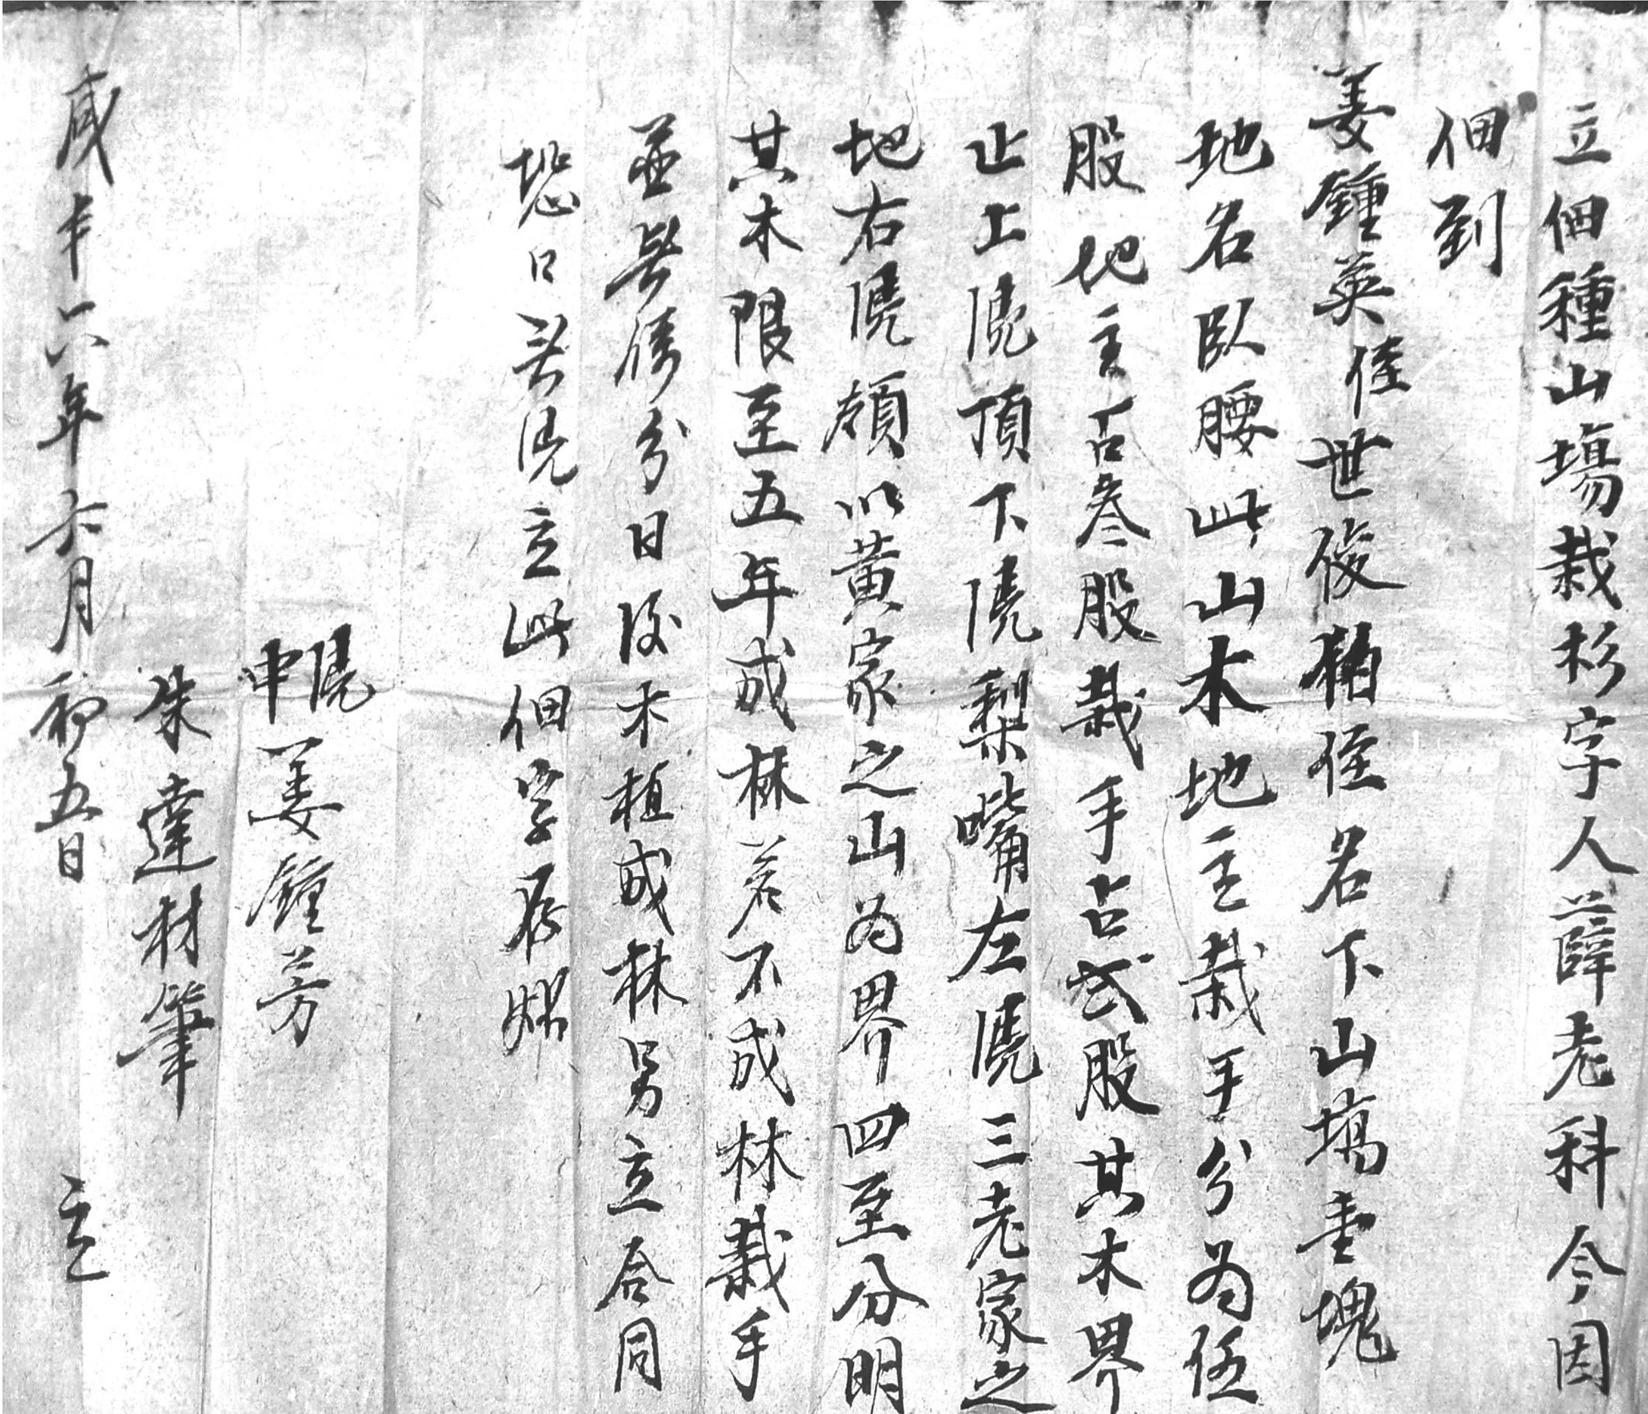 立佃種山塲栽杉字人薛老科今因
佃到
姜鍾英侄世俊猶侄名下山塲壹塊
地名臥腰此山木地主栽手分為伍
股地主占叁股栽手占貳股其木界
止上憑頂下憑梨嘴左憑三老家之
地右憑嶺以黃家之山為界四至分明
其木限至五年成林若不成林栽手
並無係分日後木植成林另立合同
恐口無凭立此佃字存照
憑中姜鍾芳
朱達材筆
咸丰六年六月初五日 立